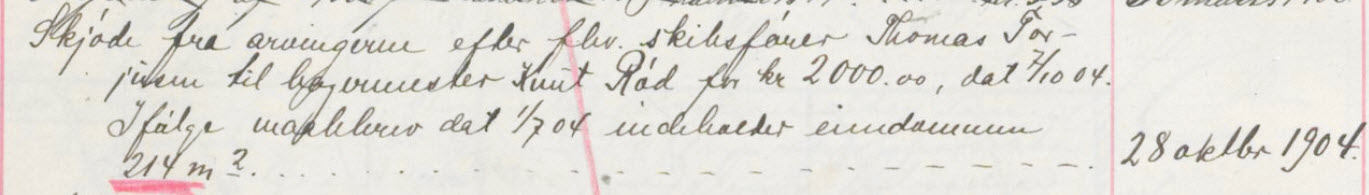 Skjøde fra arvingerne efter fhv. skibsfører Thomas Tor-
jusen til bygmester Knut Rød for kr 2000.00, dat 7/10 04.
Ifølge maalebrev dat 1/7 04 indeholder eiendommen
214 m². 28 oktbr 1904.